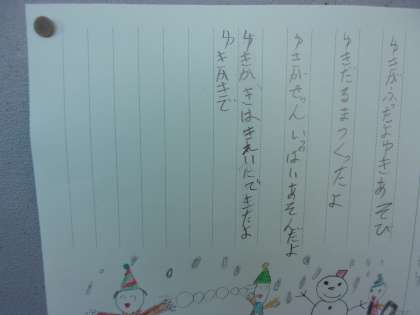 ゆきがふったよゆきあそび
ゆきだるまつくったよ
ゆきがさん いっぱいあそんだよ
ゆきがきはきれいにできたよ
ゆきがきで